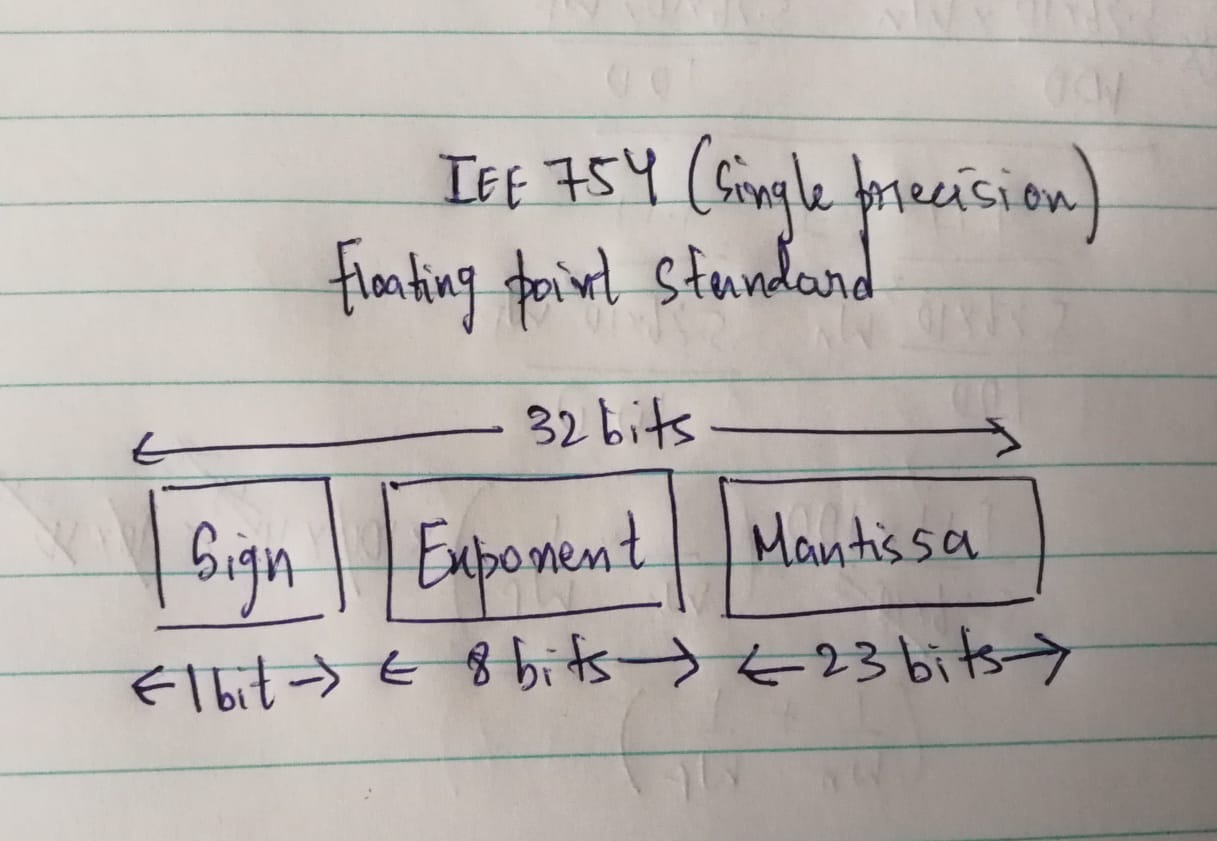 IEE 754 (Single precision)
floating point standard
32 bits
Sign Exponent Mantissa
1 bit 8 bits 23 bits